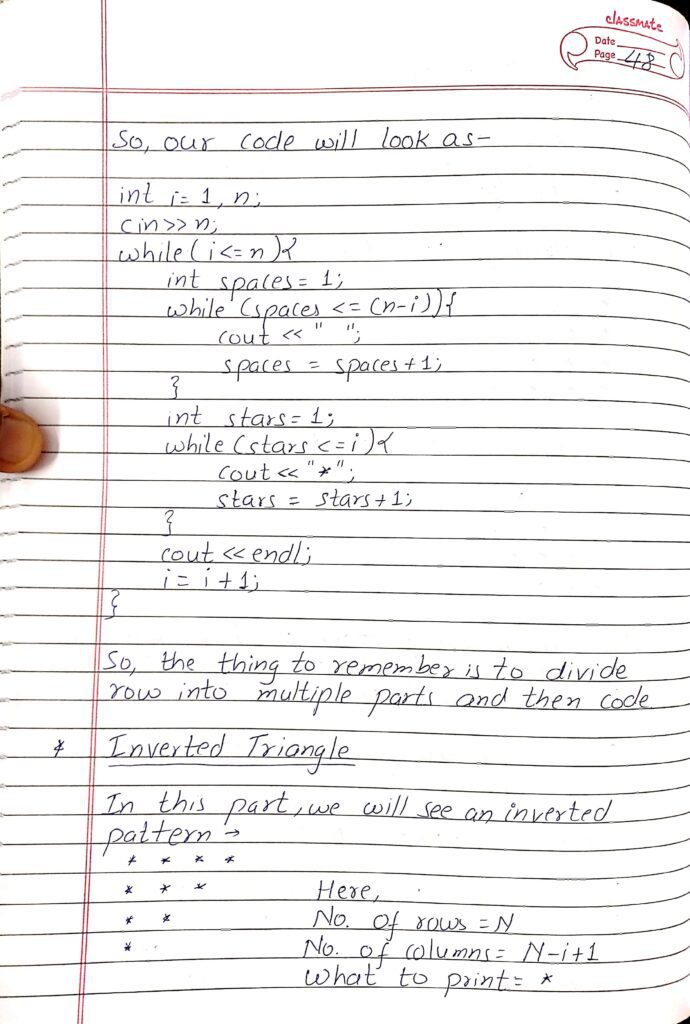 classmate
Date
Page 48
So, our code will look as-
int i= 1, n;
cin>> n;
while(i<=n){
int spaces= 1;
while (spaces <= (n-i)){
cout << " ";
spaces = spaces+1;
}
int stars= 1;
while (stars <=i){
cout<< "*";
stars = stars+1;
}
cout <<endl;
i = i+1;
}
So, the thing to remember is to divide
row into multiple parts and then code
* Inverted Triangle
In this part, we will see an inverted
pattern →
* * * *
* * * Here,
* * No. of rows = N
* No. of columns= N-i+1
What to print= *